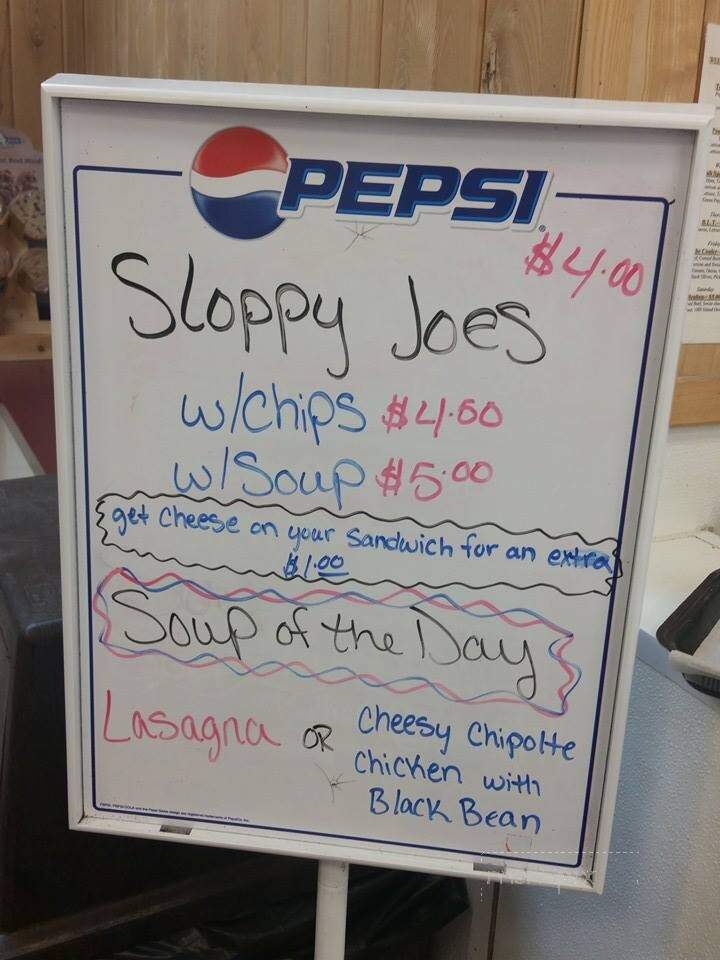 PEPSI
$4.00
Sloppy Joes
w/chips $4.50
w/Soup $5.00
get cheese on your sandwich for an extra
$1.00
Soup of the Day
Lasagna OR Cheesy Chipolte
Chicken with
Black Bean